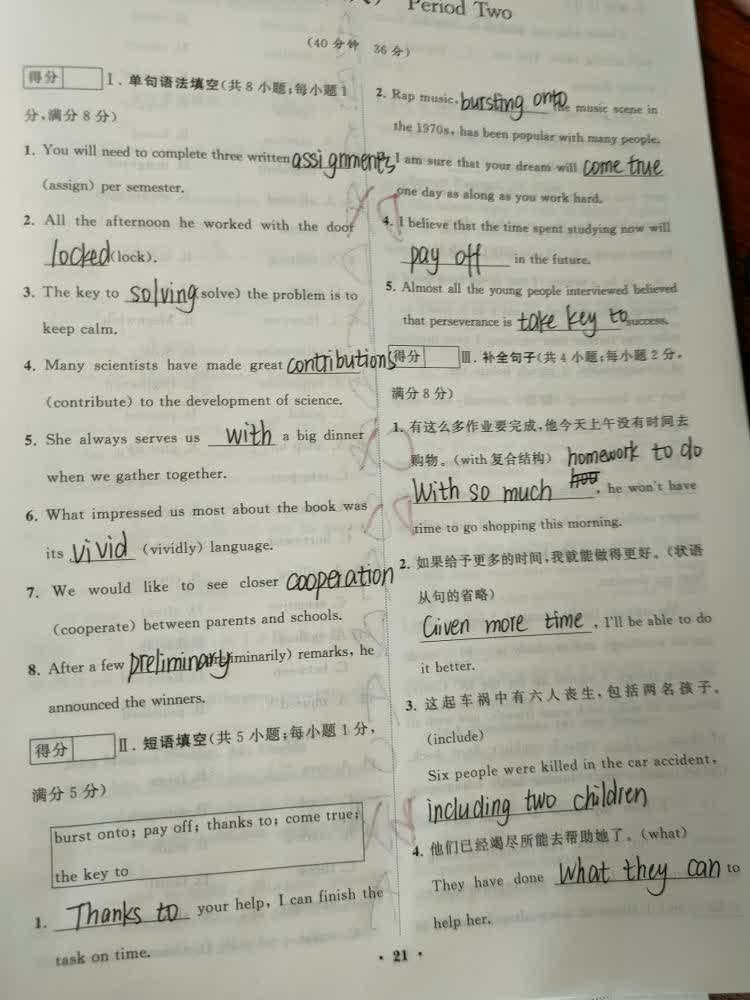 Period Two
(40 分钟 36 分)
得分
Ⅰ. 单句语法填空(共 8 小题;每小题 1
分,满分 8 分)
1. You will need to complete three written assignments
(assign) per semester.
2. All the afternoon he worked with the door
locked (lock).
3. The key to solving (solve) the problem is to
keep calm.
4. Many scientists have made great contributions
(contribute) to the development of science.
5. She always serves us with a big dinner
when we gather together.
6. What impressed us most about the book was
its vivid (vividly) language.
7. We would like to see closer cooperation
(cooperate) between parents and schools.
8. After a few preliminary iminarily) remarks, he
announced the winners.
得分
Ⅱ. 短语填空(共 5 小题;每小题 1 分,
满分 5 分)
burst onto; pay off; thanks to; come true;
the key to
1. Thanks to your help, I can finish the
task on time.
2. Rap music, bursting onto the music scene in
the 1970s, has been popular with many people.
I am sure that your dream will come true
one day as along as you work hard.
4. I believe that the time spent studying now will
pay off in the future.
5. Almost all the young people interviewed believed
that perseverance is take key to success.
得分
Ⅲ. 补全句子(共 4 小题;每小题 2 分,
满分 8 分)
1. 有这么多作业要完成,他今天上午没有时间去
购物。(with 复合结构) homework to do
With so much , he won't have
time to go shopping this morning.
2. 如果给予更多的时间,我就能做得更好。(状语
从句的省略)
Given more time , I'll be able to do
it better.
3. 这起车祸中有六人丧生,包括两名孩子。
(include)
Six people were killed in the car accident,
including two children
4. 他们已经竭尽所能去帮助她了。(what)
They have done what they can to
help her.
· 21 ·